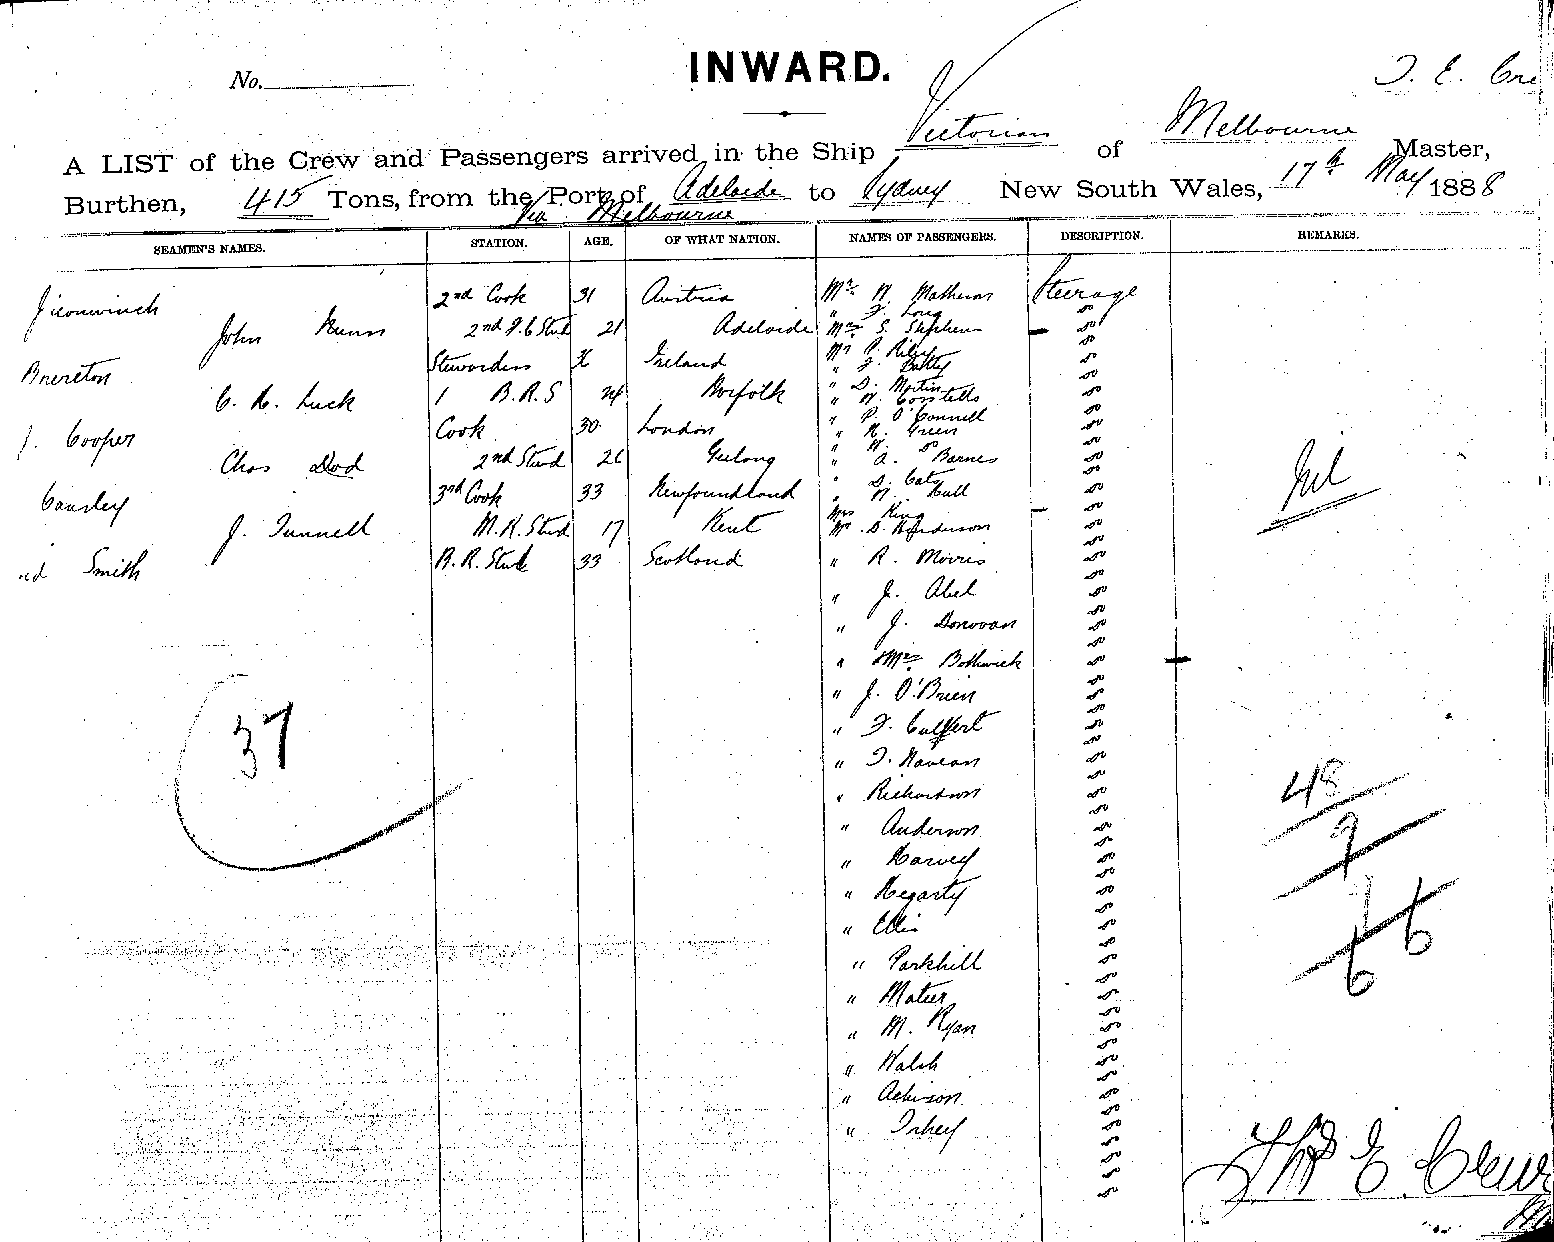 INWARD.
No.
T. E. Cre
A LIST of the Crew and Passengers arrived in the Ship Victorian of Melbourne Master,
Burthen, 415 Tons, from the Port of Adelaide to Sydney New South Wales, 17th May 1888
Via Melbourne
SEAMEN'S NAMES. STATION. AGE. OF WHAT NATION. NAMES OF PASSENGERS. DESCRIPTION. REMARKS.
2nd Cook 31 Austria Mr. W. Matheson Steerage
" F. Long
John Nunn 2nd F.C Stud 21 Adelaide Mrs S. Stephens
Brereton Stewardess Ireland Mr P. Riley
" F. Batty
C. R. Luck 1 B.R.S 24 Norfolk " D. Martin
" W. Costello
J. Cooper Cook 30 London " P. O'Connell
" R. Green
Chas Dod 2nd Stud 26 Geelong " A. Barnes
Cansley 3rd Cook 33 Newfoundland
" W. Hall
Mrs King
J. Tunnell M.R. Stud 17 Kent Mr D. Henderson
Smith B.R. Stud 33 Scotland " R. Morris
" J. Abel
" J. Donovan
" & Mrs Bothwick
" J. O'Brien
" F. Culvert
" Richardson
" Anderson
" Harvey
" Hegarty
" Ellis
" Parkhill
" Mateer
" M. Ryan
" Walsh
" Ackison
Nil
37
48
9
1
6 6
Thos E. Crew